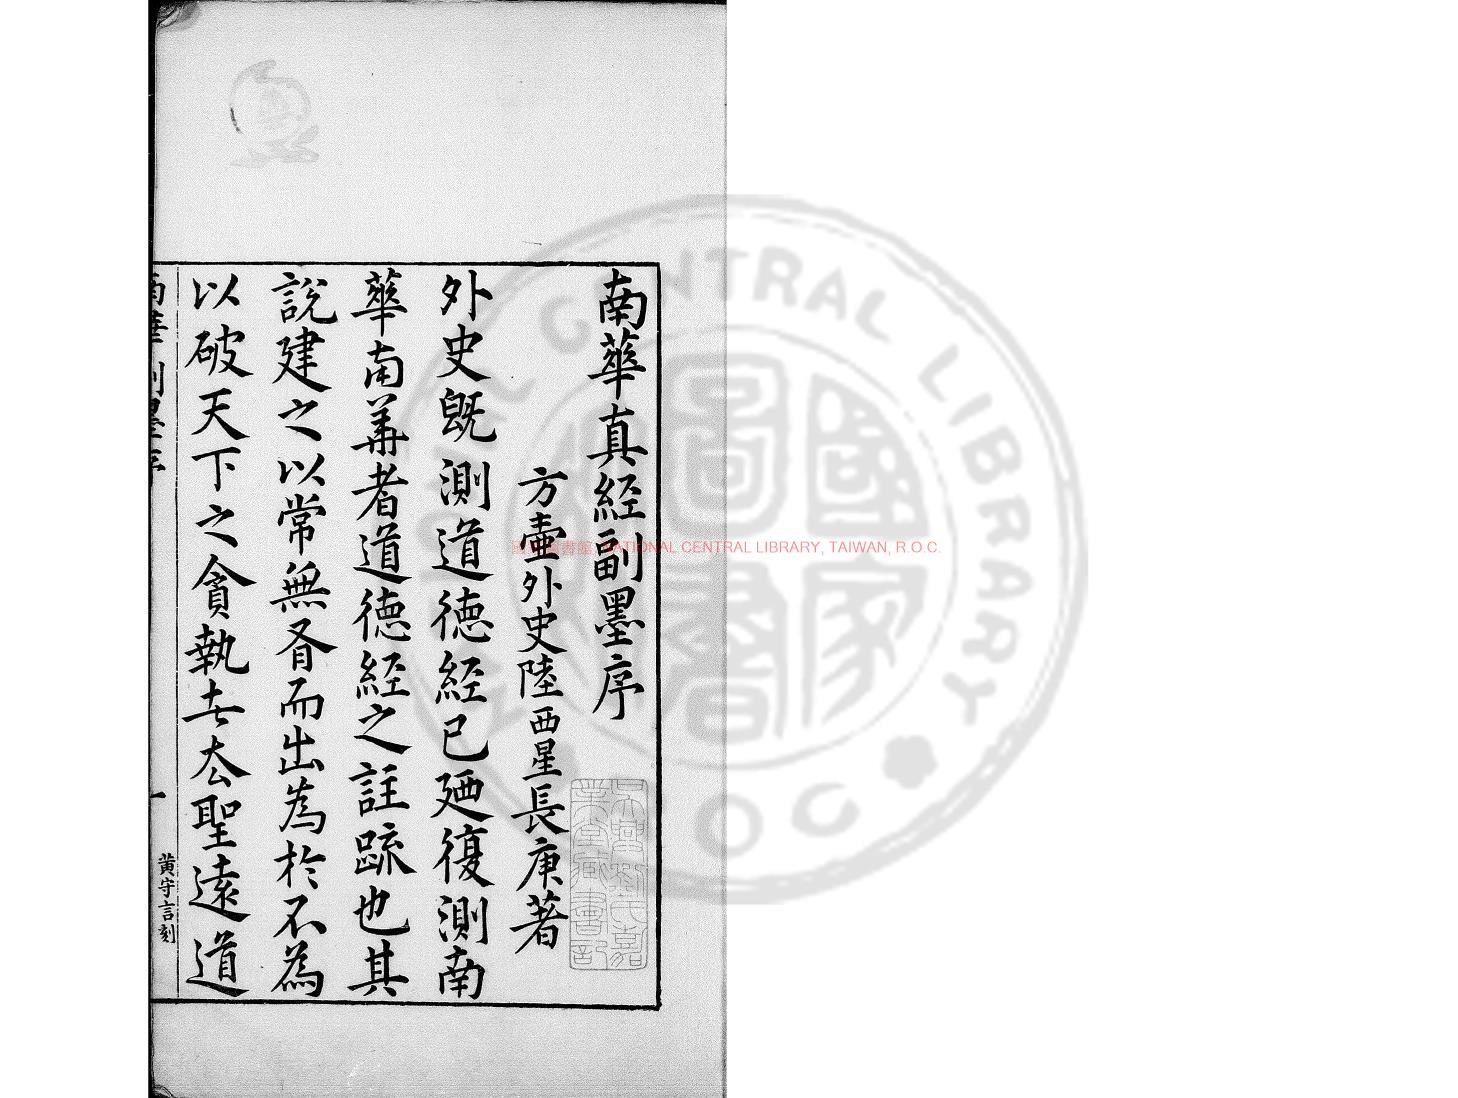 南華真經副墨序
方壺外史陸西星長庚著
外史旣測道德經已廼復測南
華南華者道德經之註疏也其
說建之以常無有而出為於不為
以破天下之貪執去太聖遠道
南華副墨序
一
黃守言刻
吳興劉氏嘉
業堂藏書記
NATIONAL CENTRAL LIBRARY, TAIWAN, R.O.C.
國家圖書館
CENTRAL LIBRARY